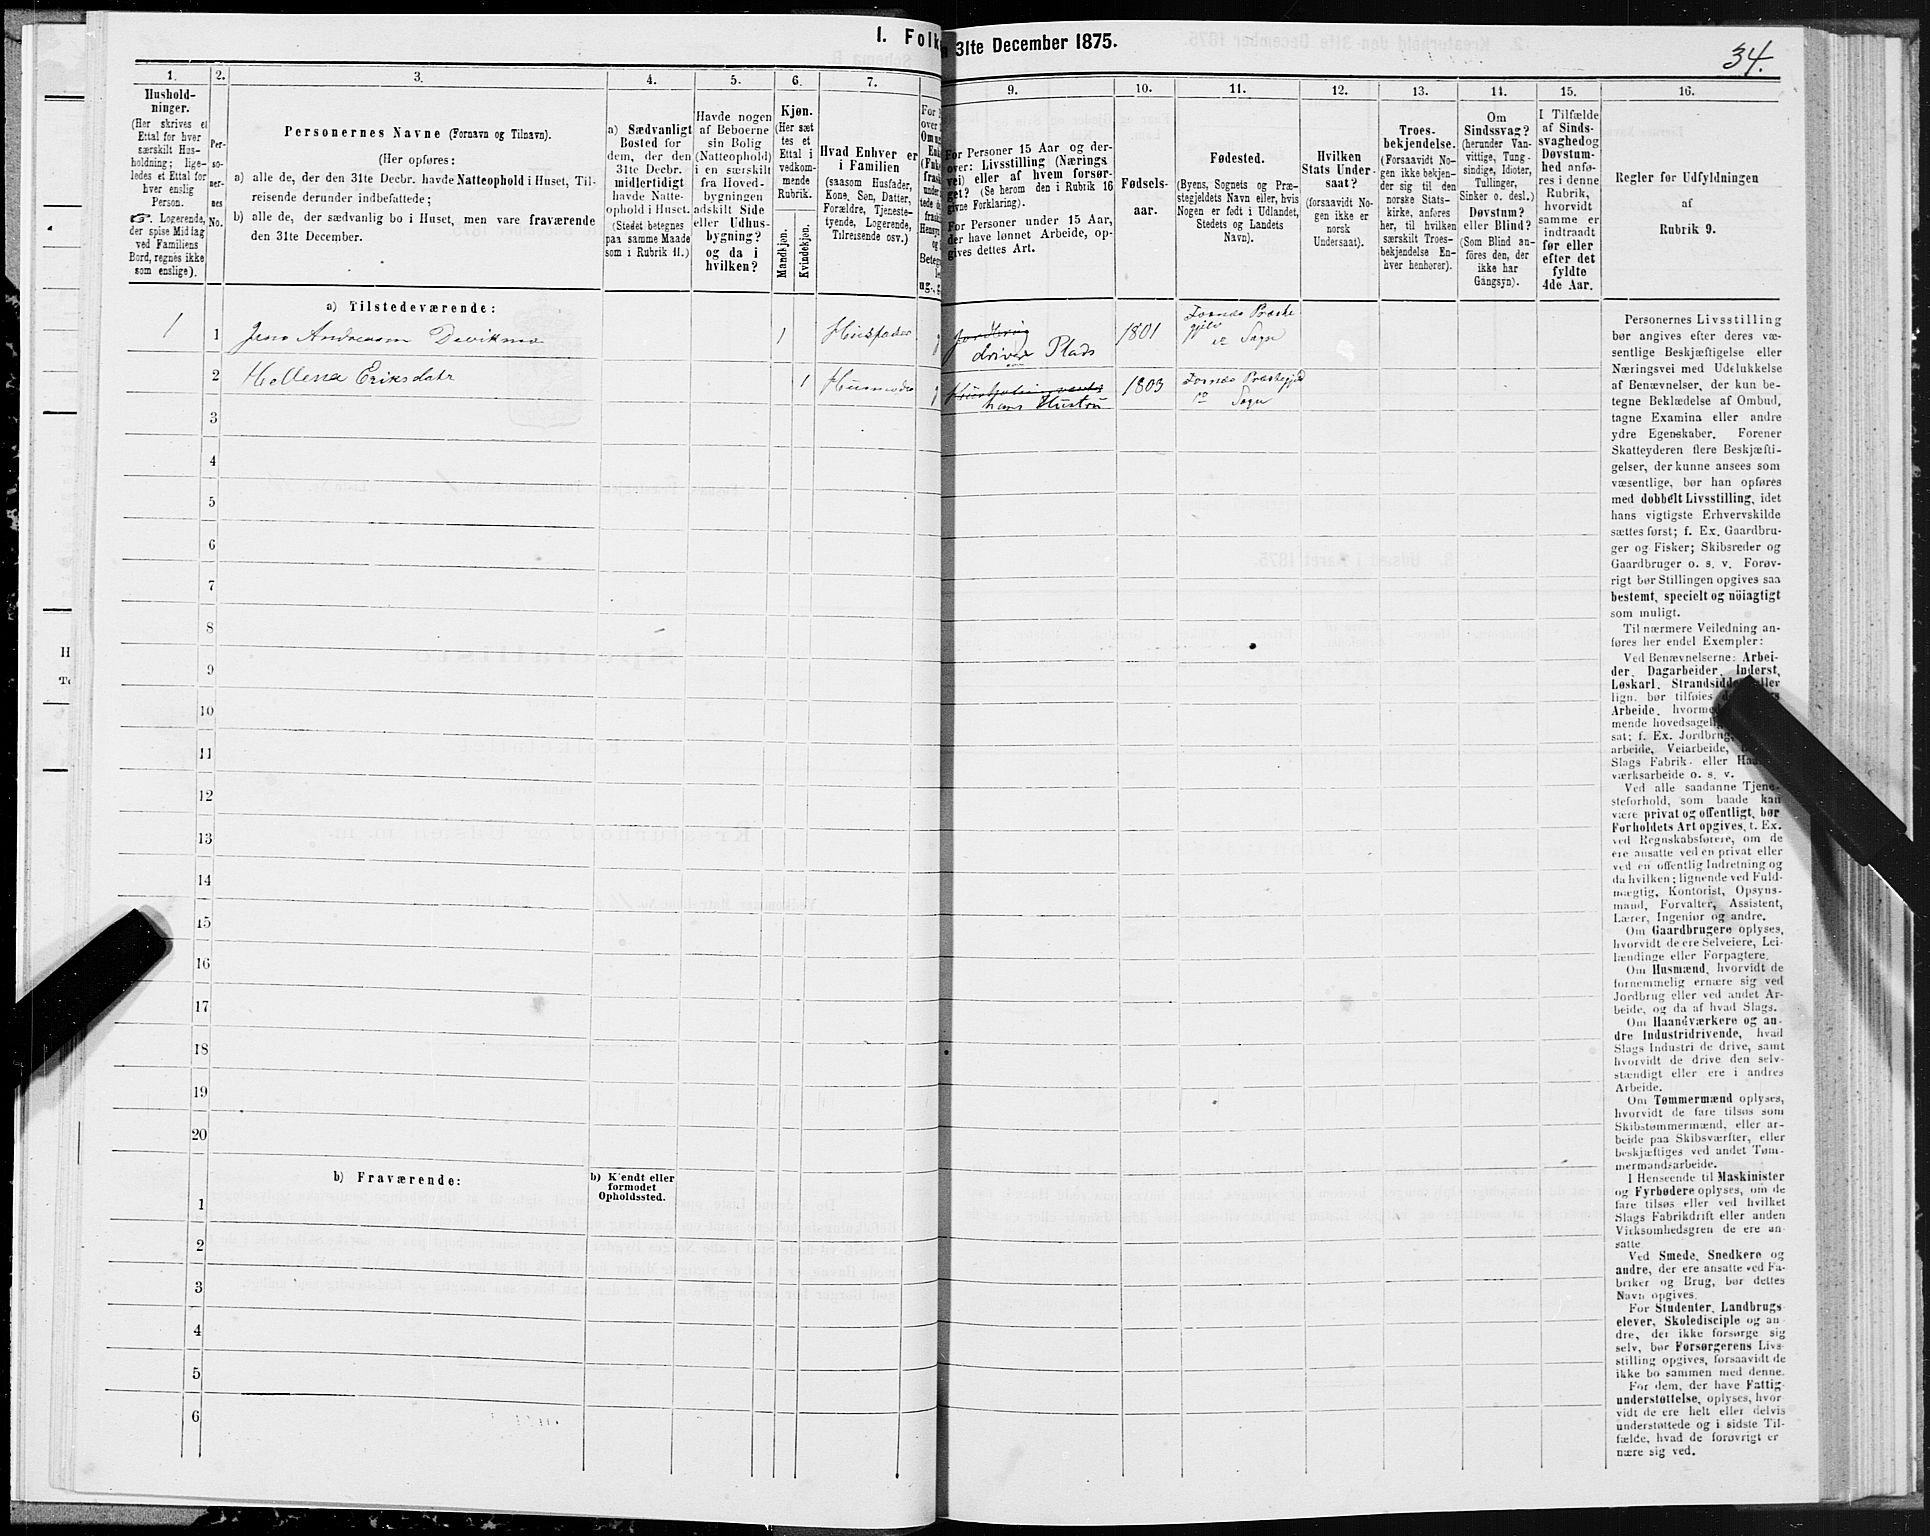 I. Folk
n 31te December 1875.
34.
1.
2.
3.
4.
5.
6.
7.
9.
10.
11.
12.
13.
14.
15.
16.
Hushold-
ninger.
(Her skrives et
Ettal for hver
særskilt Hus-
holdning; lige-
ledes et Ettal for
hver enslig
Person.
Logerende,
der spise Middag
ved Familiens
Bord, regnes ikke
som enslige).
Per-
so-
ner-
nes
No.
Personernes Navne (Fornavn og Tilnavn).
(Her opføres:
a) alle de, der den 31te Decbr. havde Natteophold i Huset, Til-
reisende derunder indbefattede;
b) alle de, der sædvanlig bo i Huset, men vare fraværende
den 31te December.
a) Sædvanligt
Bosted for
dem, der den
31te Decbr.
midlertidigt
havde Natte-
ophold i Huset.
(Stedet betegnes
paa samme Maade
som i Rubrik 11.)
Havde nogen
af Beboerne
sin Bolig
(Natteophold)
i en særskilt
fra Hoved-
bygningen
adskilt Side
eller Udhus-
bygning?
og da i
hvilken?
Kjøn.
(Her sæt
tes et
Ettal i
vedkom-
mende
Rubrik.
Mandkjøn.
Kvindekjøn.
Hvad Enhver er
i Familien
(saasom Husfader,
Kone, Søn, Datter,
Forældre, Tjeneste-
tyende, Logerende,
Tilreisende osv.)
For Personer 15 Aar og der-
over: Livsstilling (Nærings
vei) eller af hvem forsør-
get? (Se herom den i Rubrik 16
givne Forklaring).
For Personer under 15 Aar,
der have lønnet Arbeide, op-
gives dettes Art.
Fødsels-
aar.
Fødested.
(Byens, Sognets og Præ-
stegjeldets Navn eller, hvis
Nogen er født i Udlandet,
Stedets og Landets
Navn).
Hvilken
Stats Under-
saat?
(forsaavidt No-
gen ikke er
norsk
Undersaat).
Troes-
bekjendelse.
(Forsaavidt No-
gen ikke bekjen-
der sig til den
norske Stats-
kirke, anføres
her, til hvilken
særskilt Troes-
bekjendelse En-
hver henhører).
Om
Sindssvag?
(herunder Van-
vittige, Tung-
sindige, Idioter,
Tullinger,
Sinker o. desl.)
Døvstum?
eller Blind?
(Som Blind an-
føres den, der
ikke har
Gangsyn).
I Tilfælde
af Sinds-
svaghed og
Døvstum-
hed anfø-
res i denne
Rubrik,
hvorvidt
samme er
indtraadt
før eller
efter det
fyldte
4de Aar.
Regler for Udfyldningen
af
Rubrik 9.
a) Tilstedeværende:
1
1
Jens Andreasen
1
Husfader
g
driver Plads
1801
Præste
Sogn
2
Hellena Eriksdatr
1
Husmoder
g
hans Hustru
1803
Præstegjeld
Sogn
3
4
5
6
7
8
9
10
11
12
13
14
15
16
17
18
19
20
b) Fraværende:
b) Kjendt eller
formodet
Opholdssted.
1
2
3
4
5
6
Personernes Livsstilling
bør angives efter deres væ-
sentlige Beskjæftigelse eller
Næringsvei med Udelukkelse
af Benævnelser, der kun be-
tegne Beklædelse af Ombud,
tagne Examina eller andre
ydre Egenskaber. Forener
Skatteyderen flere Beskjæfti-
gelser, der kunne ansees som
væsentlige, bør han opføres
med dobbelt Livsstilling, idet
hans vigtigste Erhvervskilde
sættes først; f. Ex. Gaardbru-
ger og Fisker; Skibsreder og
Gaardbruger o. s. v. Forøv-
rigt bør Stillingen opgives saa
bestemt, specielt og nöiagtigt
som muligt.
Til nærmere Veiledning an-
føres her endel Exempler:
Ved Benævnelserne: Arbei-
der, Dagarbeider, Inderst,
Løskarl, Strandsidder eller
lign. bør tilføies
Arbeide,
mende
sat; f. Ex. Jordbrug,
arbeide, Veiarbeide,
Slags Fabrik- eller
værksarbeide o. s. v.
Ved alle saadanne Tjene-
steforhold, som baade kan
være privat og offentligt, bør
Forholdets Art opgives, t. Ex.
ved Regnskabsførere, om de
ere ansatte ved en privat eller
ved en offentlig Indretning og
da hvilken; lignende ved Fuld-
mægtig, Kontorist, Opsyns-
mand, Forvalter, Assistent,
Lærer, Ingeniør og andre.
Om Gaardbrugere oplyses,
hvorvidt de ere Selveiere, Lei-
lændinge eller Forpagtere.
Om Husmænd, hvorvidt de
fornemmelig ernære sig ved
Jordbrug eller ved andet Ar-
beide, og da af hvad Slags.
Om Haandværkere og an-
dre Industridrivende, hvad
Slags Industri de drive, samt
hvorvidt de drive den selv-
stændigt eller ere i andres
Arbeide.
Om Tømmermænd oplyses,
hvorvidt de fare tilsøs som
Skibstømmermænd, eller ar-
beide paa Skibsværfter, eller
beskjæftiges ved andet Tøm-
mermandsarbeide.
I Henseende til Maskinister
og Fyrbødere oplyses, om de
fare tilsøs eller ved hvilket
Slags Fabrikdrift eller anden
Virksomhedsgren de ere an-
satte.
Ved Smede, Snedkere og
andre, der ere ansatte ved Fa-
briker og Brug, bør dettes
Navn opgives.
For Studenter, Landbrugs-
elever, Skoledisciple og an-
dre, der ikke forsørge sig
selv, bør Forsørgerens Livs-
stilling opgives, forsaavidt de
ikke bo sammen med denne.
For dem, der have Fattig-
understøttelse, oplyses, hvor-
vidt de ere helt eller delvis
understøttede og i sidste Til-
fælde, hvad de forøvrigt er-
nære sig ved.